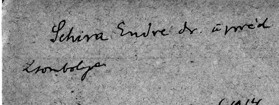 Schira Endre dr. ügyvéd
Zsombolya
1914